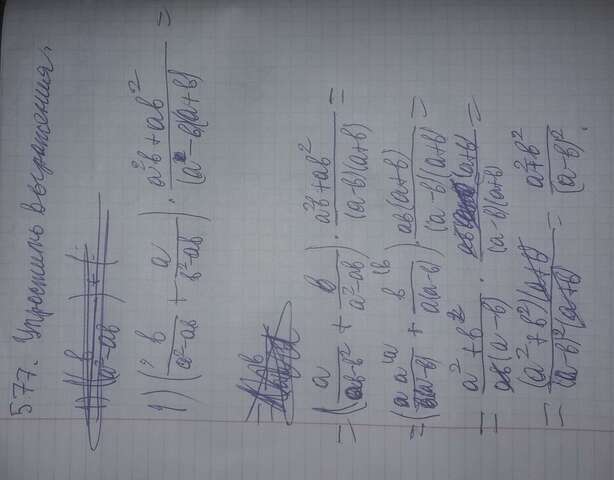 577. Упростить выражения.
1) (b/(a²-ab) + a/(b²-ab)) · (a²b+ab²)/((a-b)(a+b)) =
= (a/(ab-b²) + b/(a²-ab)) · (a²b+ab²)/((a-b)(a+b)) =
= (a/(b(a-b)) + b/(a(a-b))) · ab(a+b)/((a-b)(a+b)) =
= (a²+b²)/(ab(a-b)) · ab(a+b)/((a-b)(a+b)) =
= (a²+b²)(a+b)/((a-b)²(a+b)) = (a²+b²)/(a-b)².